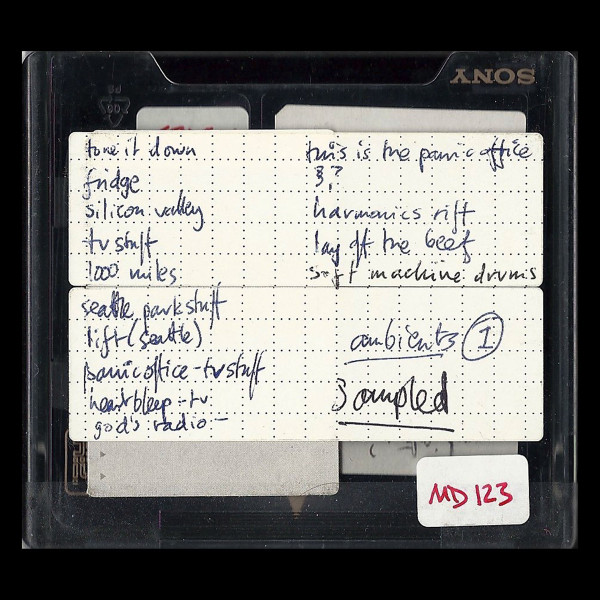 SONY
tone it down
fridge
silicon valley
tv stuff
1000 miles
this is the panic office
3?
harmonics riff
lay off the beef
soft machine drums
seattle park stuff
lift (seattle)
panic office - tv stuff
heart bleep - tv
god's radio -
ambients 1
Sampled
MD 123